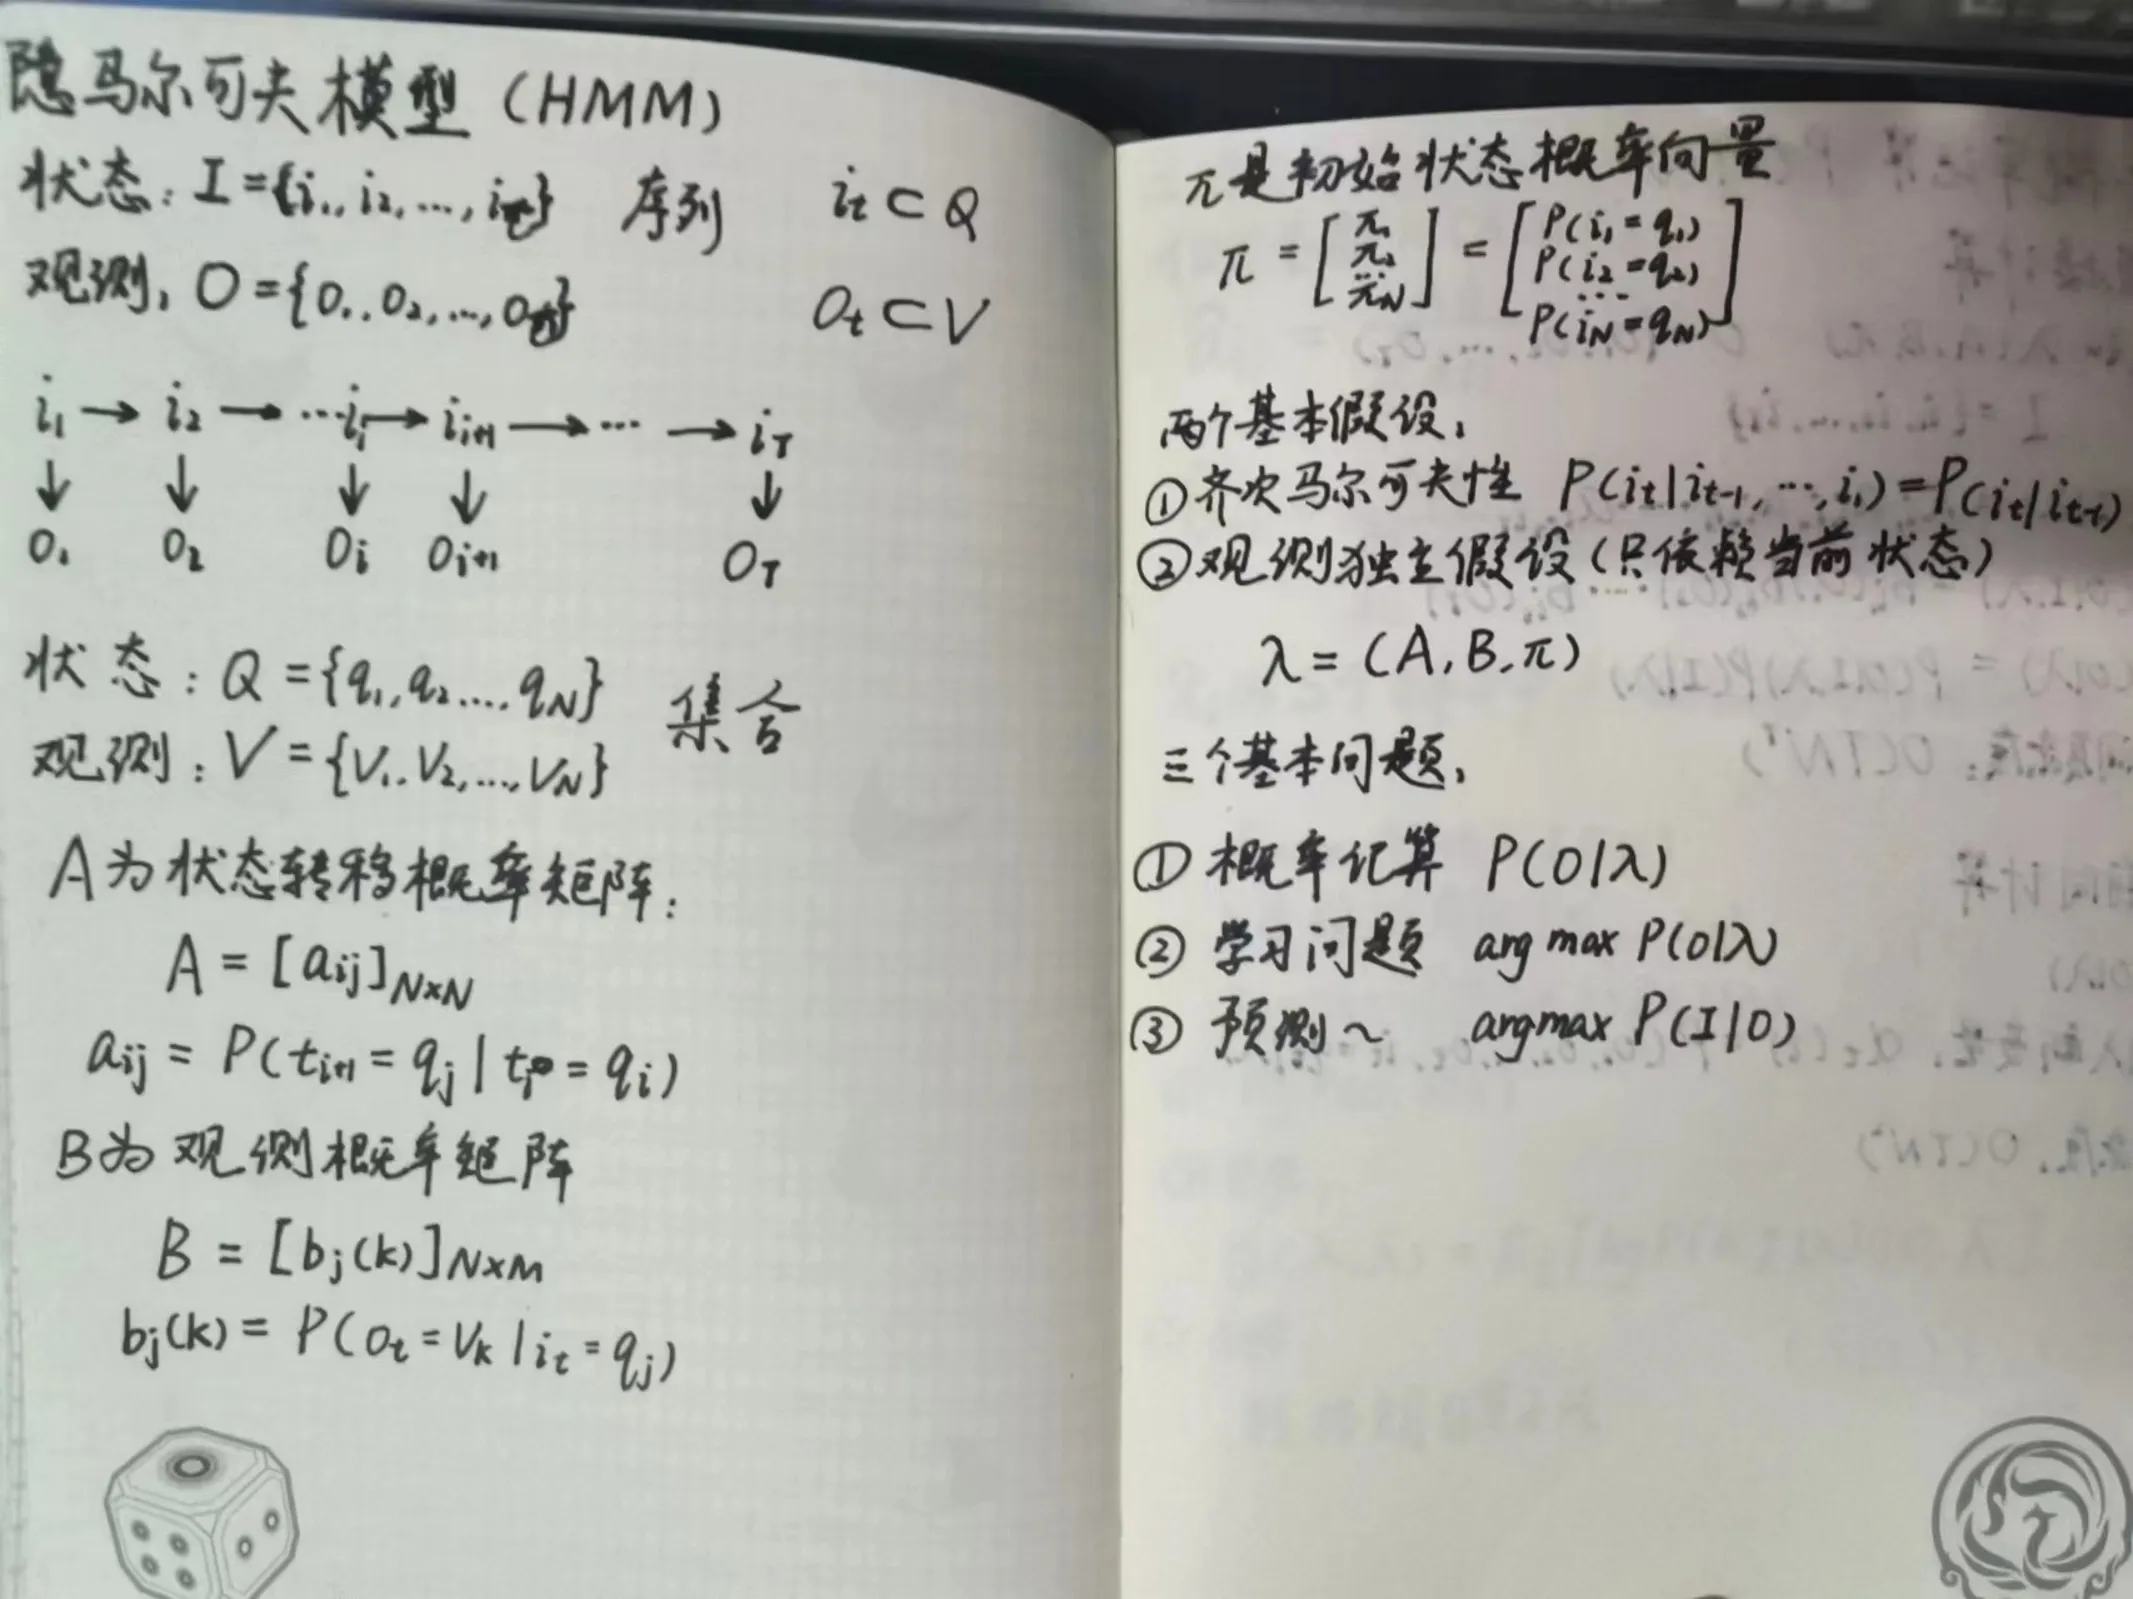 隐马尔可夫模型(HMM)
状态: I={i₁, i₂, ..., i_T} 序列 i_t ⊂ Q
观测, O={O₁, O₂, ..., O_T} O_t ⊂ V
i₁ → i₂ → ...i_i → i_{i+1} → ... → i_T
↓ ↓ ↓ ↓ ↓
O₁ O₂ O_i O_{i+1} O_T
状态: Q={q₁, q₂ ..., q_N} 集合
观测: V={V₁, V₂, ..., V_N}
A为状态转移概率矩阵:
A = [a_{ij}]_{N×N}
a_{ij} = P(t_{i+1} = q_j | t_i = q_i)
B为观测概率矩阵
B = [b_j(k)]_{N×M}
b_j(k) = P(O_t = V_k | i_t = q_j)
π是初始状态概率向量
π = [π₁ π₂ ... π_N] = [P(i₁=q₁) P(i₂=q₂) ... P(i_N=q_N)]
两个基本假设,
①齐次马尔可夫性 P(i_t|i_{t-1}, ..., i₁) = P(i_t|i_{t-1})
②观测独立假设(只依赖当前状态)
λ = (A, B, π)
三个基本问题,
① 概率计算 P(O|λ)
② 学习问题 arg max P(O|λ)
③ 预测~ argmax P(I|O)